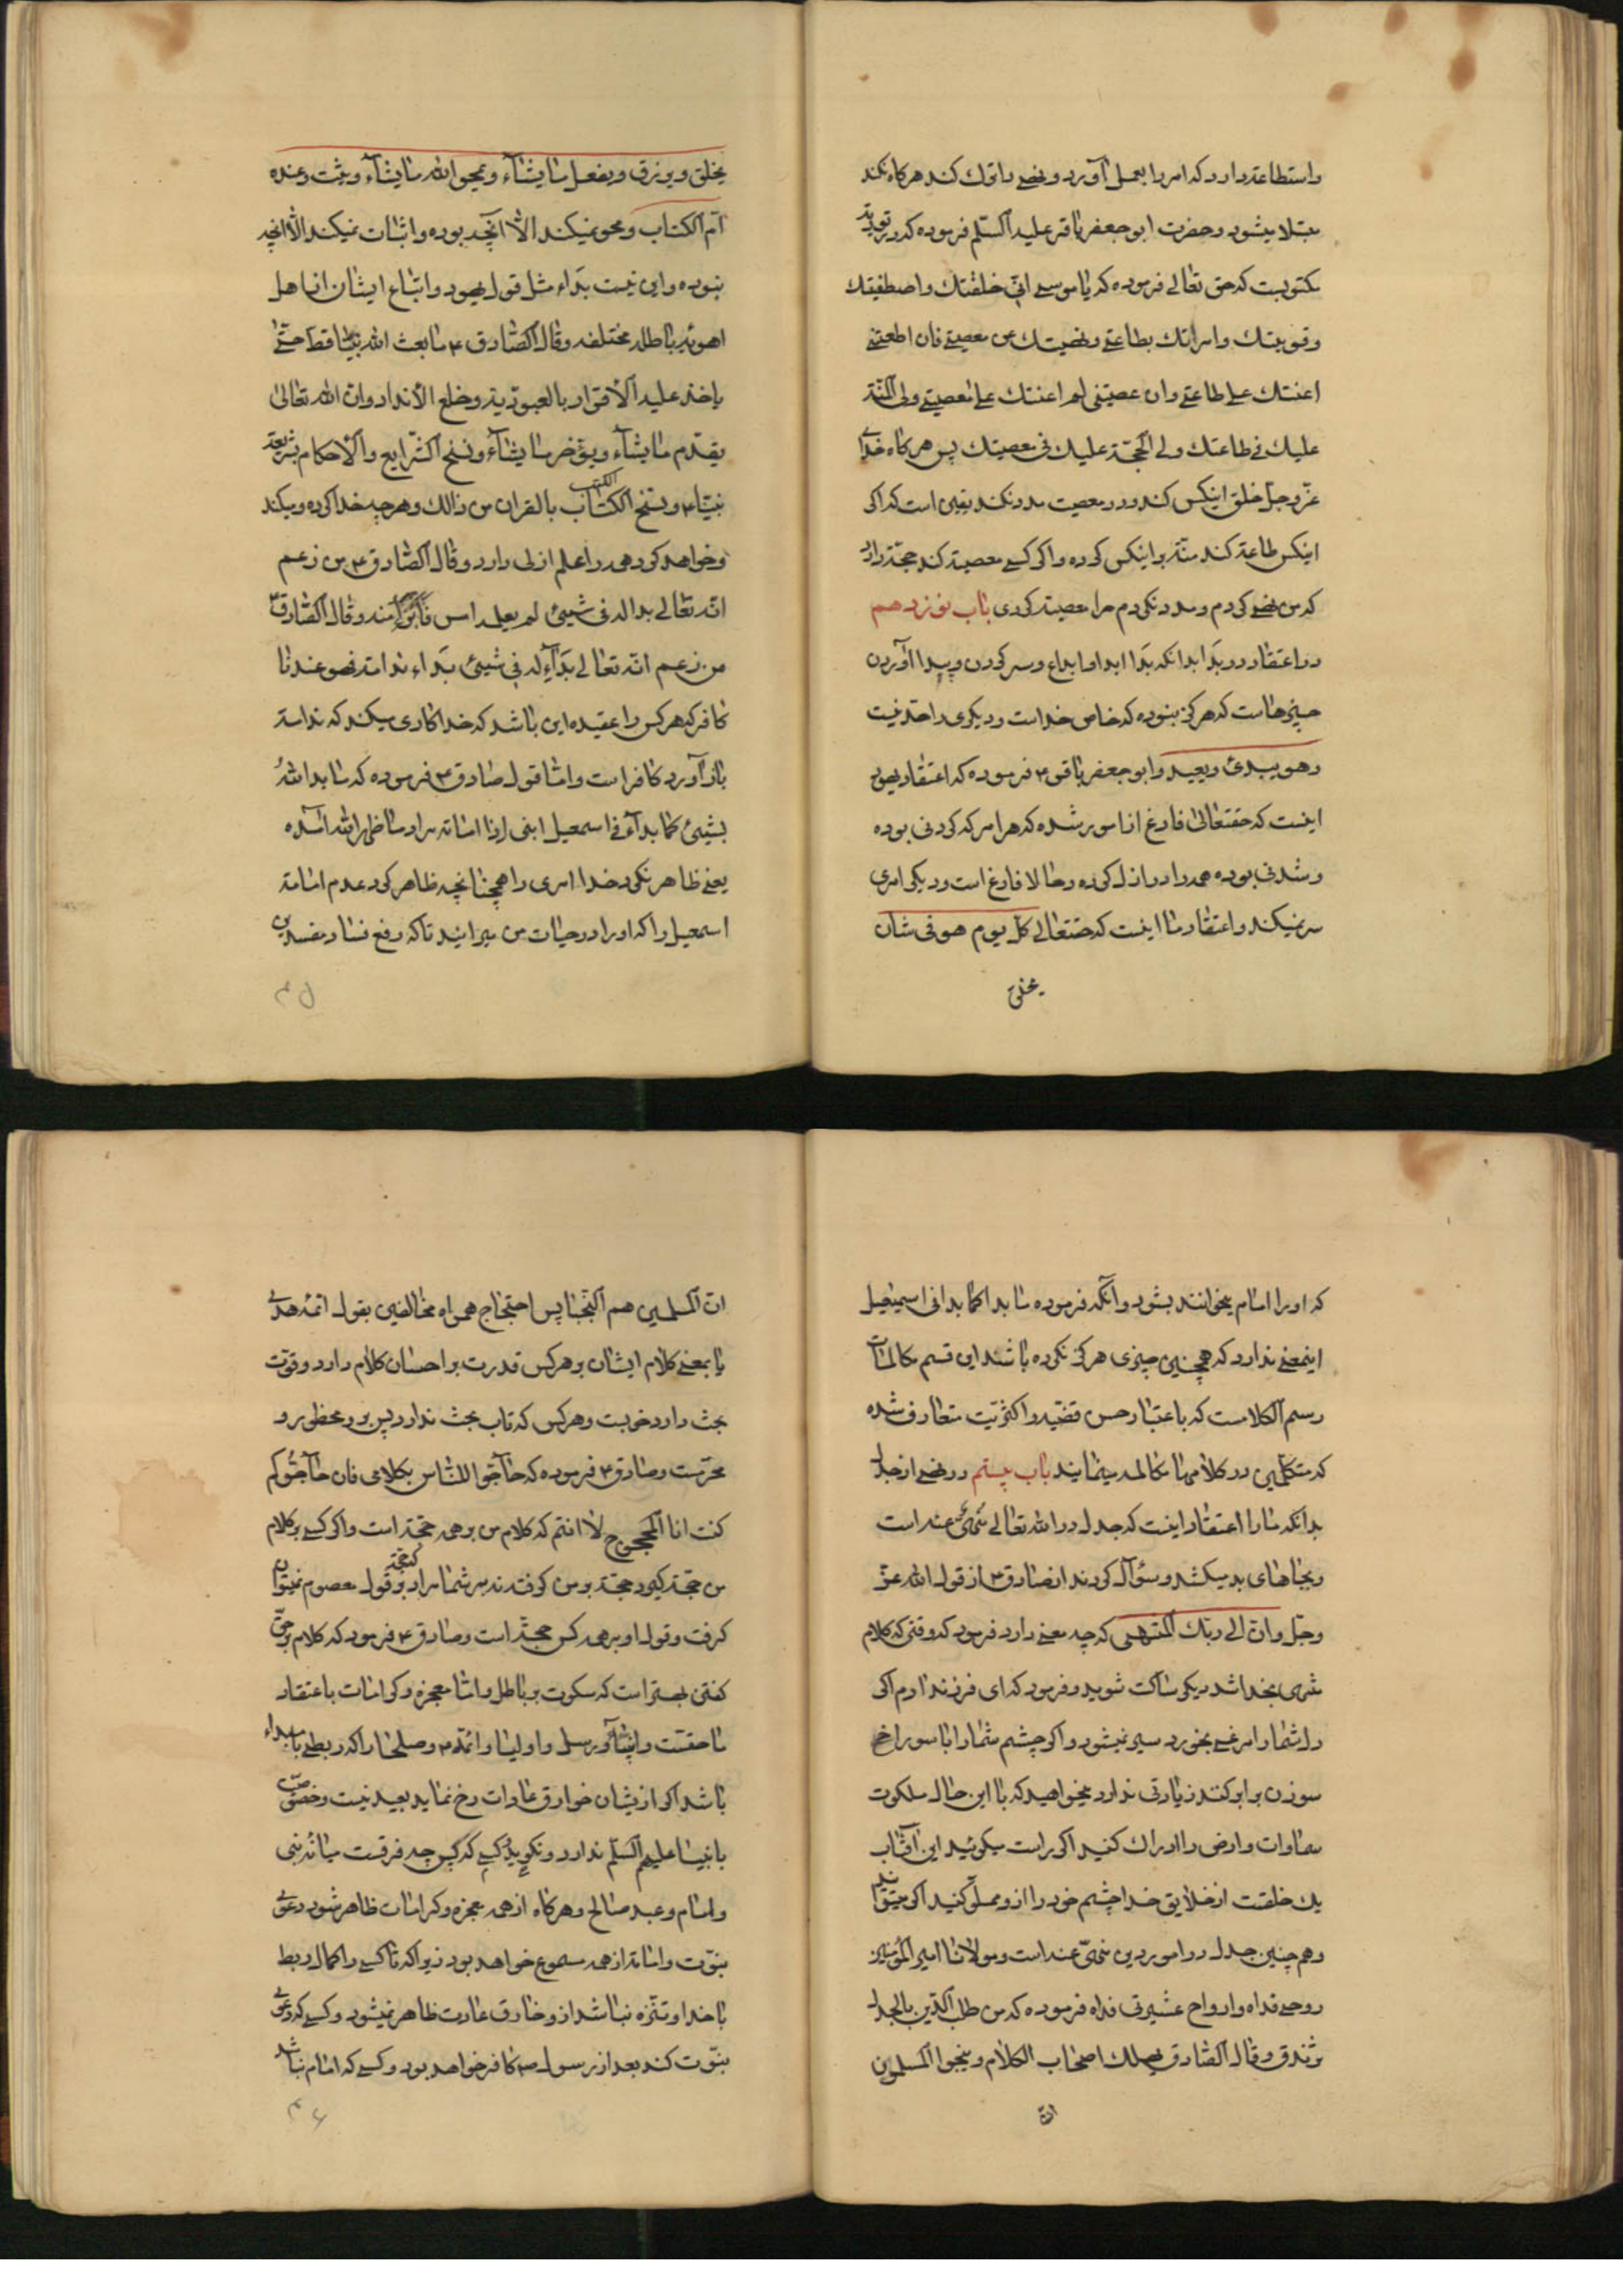 واستطاعة دارد که امر را بعمل آورد و نهی را ترک کند هرکاه نکند
مبتلا میشود و حضرت ابو جعفر باقر علیه السّلم فرموده که در توریة
مکتوبست که حق تعالے فرموده که یا موسے انّی خلقتك واصطفیتك
وقویتك وامرتك بطاعتے ونهیتك عن معصیتے فان اطعتنے
اعنتك علے طاعتے وان عصیتنی لم اعنتك علے معصیتے ولی المنّة
علیك فے طاعتك ولے الحجّة علیك فی معصیتك پس هرکاه خدا
عزّ وجلّ خلق اینکس کند و در معصیت مدد نکند یقین است که اکر
اینکس طاعة کند منّة بر اینکس کرده و اکر کسے معصیة کند حجّة دارد
که من نهے کردم و مدد نکردم مرا معصیة کردی باب نوزدهم
در اعتقاد در بَدا بدانکه بَدا ابدا و ابداع و سر کردن و پیدا آوردن
چیزهاست که هرکز نبوده که خاص خداست و دیکری را حدّ نیست
وهو یبدئ ویعید و ابو جعفر باقر ۴ فرموده که اعتقاد یهود
اینست که حقتعالیٰ فارغ از امور شده که هر امر که کردنی بوده
و شدنی بوده همه را در ازل کرده و حالا فارغ است و دیکر امری
سر نمیکند و اعتقاد ما اینست که حقتعالے کلّ یوم هو فی شان
یخلق
یخلق ویرزق ویفعل ما یشآء ویمحو الله ما یشآء ویثبت وعنده
امّ الکتاب و محو نمیکند الّا آنچه بوده و اثبات نمیکند الّا انچه
نبوده و این نیست بَداء مثل قول یهود و اتباع ایشان از اهل
اهویهٔ باطله مختلفه وقال الصّادق ۴ ما بعث الله نبیّا قط حتّے
یاخذ علیه الاقرار بالعبودیة وخلع الأنداد وان الله تعالیٰ
یقدّم ما یشآء ویؤخر ما یشآء ونسخ الشّرایع والأحکام بشریعة
نبیّنا ۴ ونسخ الکتاب الکتب بالقران من ذالك و هر چه خدا کرده و میکند
و خواهد کرد همه را علم ازلی دارد وقال الصّادق ۴ من زعم
انّه تعالے بدا له فی شیئ لم یعلمه امس فابرؤا منه وقال الصّادق
من زعم انّه تعالے بَدآء له فی شیئ بَداء ندامة فهو عندنا
کافر که هرکس را عقیده این باشد که خدا کاری میکند که ندامة
باز آورد کافر است و امّا قول صادق ۴ فرموده که ما بدا اللهُ
بشیئ کما بدآء فے اسمعیل ابنی اذا امامة مراد ما ظهر الله آمده
یعنے ظاهر نکرد خدا امری را همچنانچه ظاهر کرد عدم امامة
اسمعیل را که او را در حیات من میرانید تا که رفع فساد مفسدین
که او را امام میخوانند بشود و آنکه فرموده ما بدا کما بدا فی اسمعیل
اینمعنے ندارد که همچنین چیزی هرکز نکرده باشد این قسم مکالمات
رسم الکلامست که باعتبار حسن قضیّه و اکثریّت متعارف شده
که متکلّمین در کلامها مکالمه مینمایند باب بیستم در نهے از جدل
بدانکه ما را اعتقاد اینست که جدل در الله تعالے منهی عنه است
و بجاهای بد میکشد و سؤال کردند از صادق ۴ از قول الله عزّ
وجلّ وانّ الے ربّك المنتهی که چه معنے دارد فرمود که وقتی که کلام
شری بخدا شد دیکر ساکت شوید و فرمود که ای فرزند ادم اکر
دل شما را مرغے بخورد سیر نمیشود و اکر چشم شما را با سوراخ
سوزن برابر کنند زیادتی ندارد میخواهید که با این حال ملکوت
سماوات وارض را ادراك کنید اکر راست میکوئید این آفتاب
یك خلقت از خلایق خدا چشم خود را از و مملو کنید اکر میتوانید
و همچنین جدل در امور دین منهیّ عنه است و مولانا امیر المؤمنین
روحے فداه وارواح عشیرتی فداه فرموده که من طلب الدّین بالجدل
تزندق وقال الصّادق یهلك اصحاب الکلام وینجوا المسلمون
انّ
انّ المسلمین هم النّجبا پس احتجاج همراه مخالفین بقول ائمّه هدے
یا بمعنے کلام ایشان و هرکس قدرت بر احسان کلام دارد و قوّت
بحث دارد خوبست و هرکس که تاب بحث ندارد پس بر و محظور و
محرّمست و صادق ۴ فرموده که حآجّوا النّاس بکلامی فان حآجّوکم
کنت انا المحجوج لا انتم که کلام من بر همه حجّة است و اکر کسے بر کلام
من حجّة کیرد حجّة بر من کرفته نه بر شما مراد که حجّة بر قول معصوم نمیتوان
کرفت و قول او بر همه کس حجّة است و صادق ۴ فرمود که کلام بر حقّ
کفتن بهتر است که سکوت بر باطل و امّا معجزه و کرامات باعتقاد
ما حقست و انبیآء و رسل و اولیا و ائمّه ۴ و صلحا را که ربطے بامبداء
باشد اکر از یشان خوارق عادات رخ نماید بعید نیست و خصوصیّت
بانبیا علیهم السّلم ندارد و نکوید کسے که پس چه فرقست میانهٔ نبی
و امام و عبد صالح و هرکاه از همه معجزه و کرامات ظاهر شود دعوے
نبوّت و امامة از همه مسموع خواهد بود زیرا که تا کسے را کمال ربط
با خدا و تنزّه نباشد از و خارق عادت ظاهر نمیشود و کسے که دعوے
نبوّت کند بعد از رسول ص کافر خواهد بود و کسے که امام نباشد